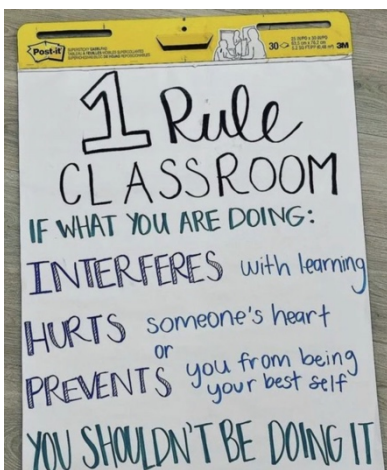 Post-it
30
3M
1 Rule
CLASSROOM
IF WHAT YOU ARE DOING:
INTERFERES with learning
HURTS someone's heart
or
PREVENTS you from being
your best self
YOU SHOULDN'T BE DOING IT